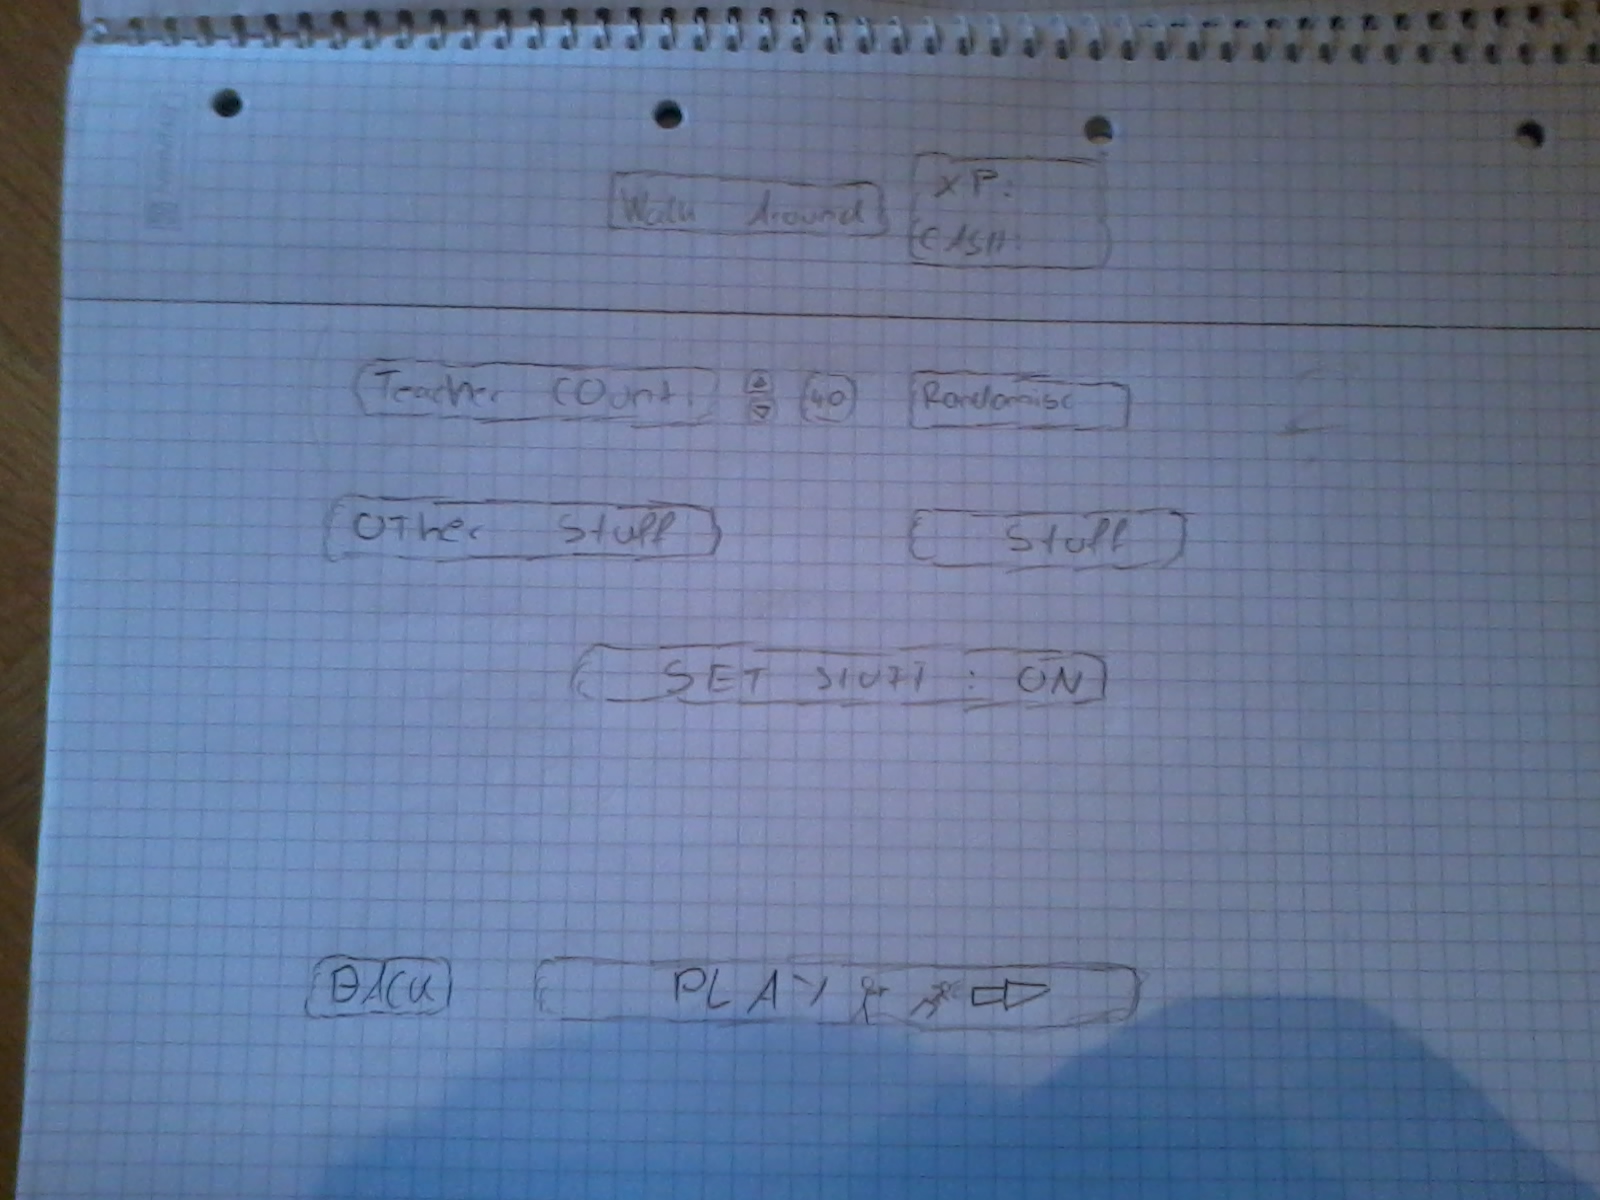 Walk Around
XP:
CASH:
Teacher Count: 40 Randomise
Other Stuff Stuff
SET Stuff : ON
BACK PLAY